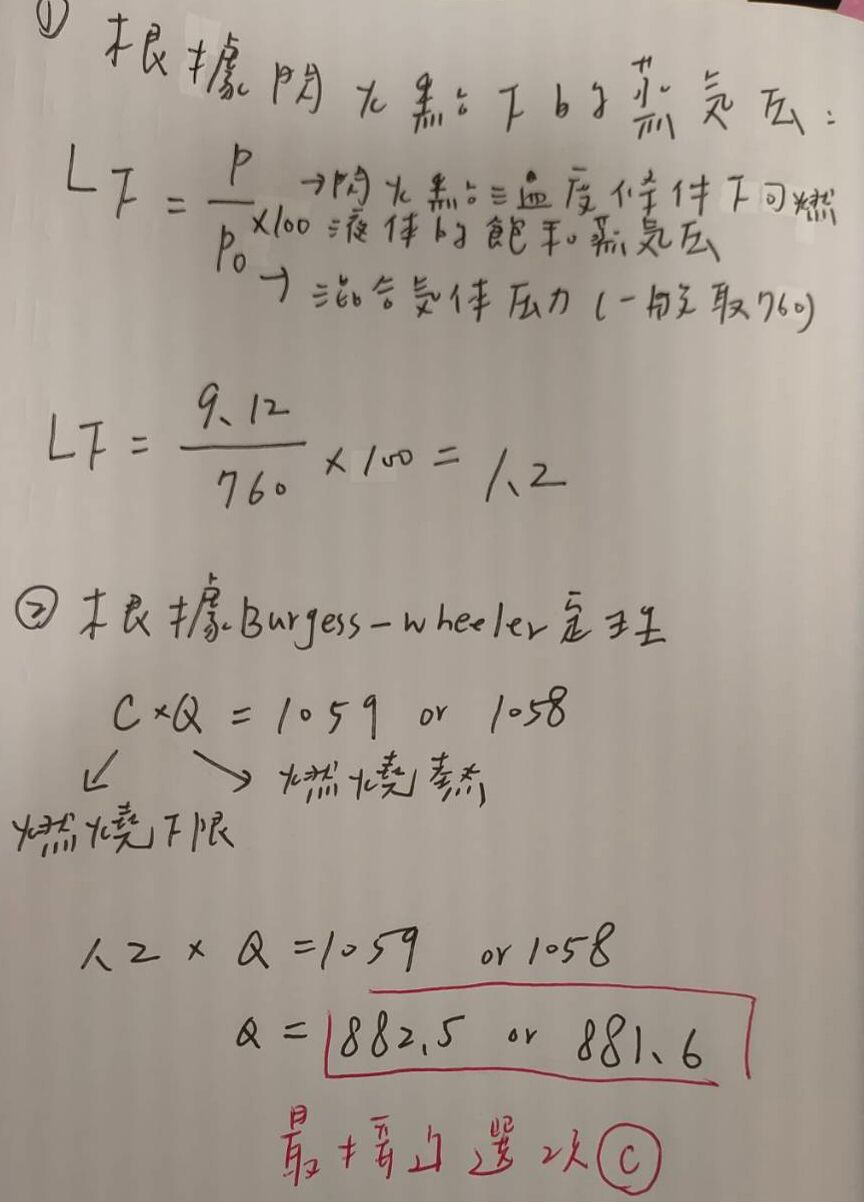 ① 根據閃火點下的蒸氣压:
LF = P/P₀ ×100 →閃火點溫度條件下可燃
液体的飽和蒸氣压
→混合気体压力(一般取760)
LF = 9.12/760 × 100 = 1.2
② 根據Burgess-wheeler定理
C×Q = 1059 or 1058
燃燒熱
燃燒下限
1.2 × Q = 1059 or 1058
Q = 882.5 or 881.6
最接近選項Ⓒ